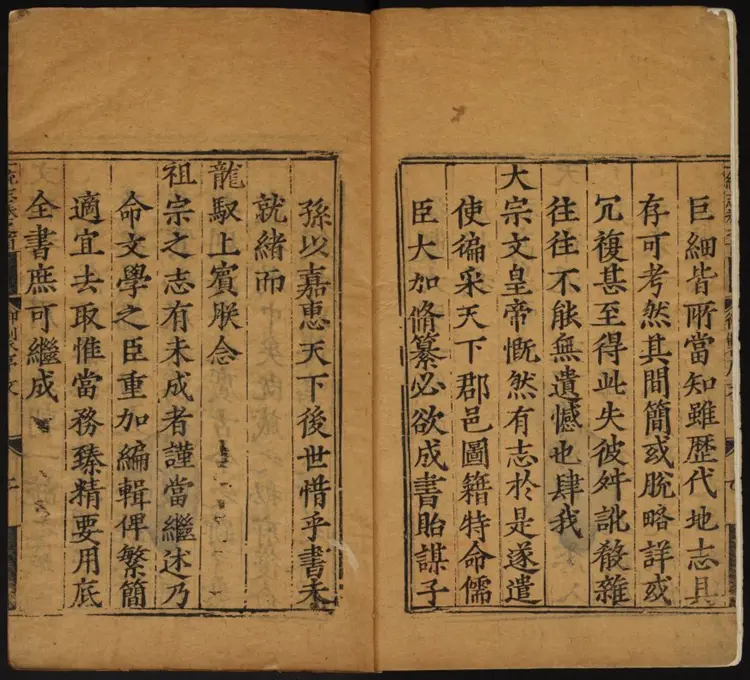 巨細皆所當知雖歷代地志具
存可考然其間簡或脫略詳或
冗複甚至得此失彼舛訛殽雜
往往不能無遺憾也肆我
太宗文皇帝慨然有志於是遂遣
使徧采天下郡邑圖籍特命儒
臣大加脩纂必欲成書貽謀子
孫以嘉惠天下後世惜乎書未
就緒而
龍馭上賓朕念
祖宗之志有未成者謹當繼述乃
命文學之臣重加編輯俾繁簡
適宜去取惟當務臻精要用底
全書庶可繼成